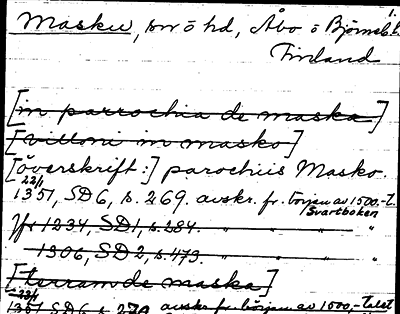 1.
Masku, sn o hd, Åbo o Björneb. l.
Finland
[in parrochia de maska]
[villoni in masko]
[överskrift:] parochiis Masko.
22/1
1351, SD6, s. 269. avskr. fr. början av 1500-t.
Svartboken
Jfr 1234, SD1, s. 284. " " "
1306, SD2, s. 473. " " "
[terram de maska]
23/1
1351 SD6 s. 270 avskr. fr. början av 1500-talet